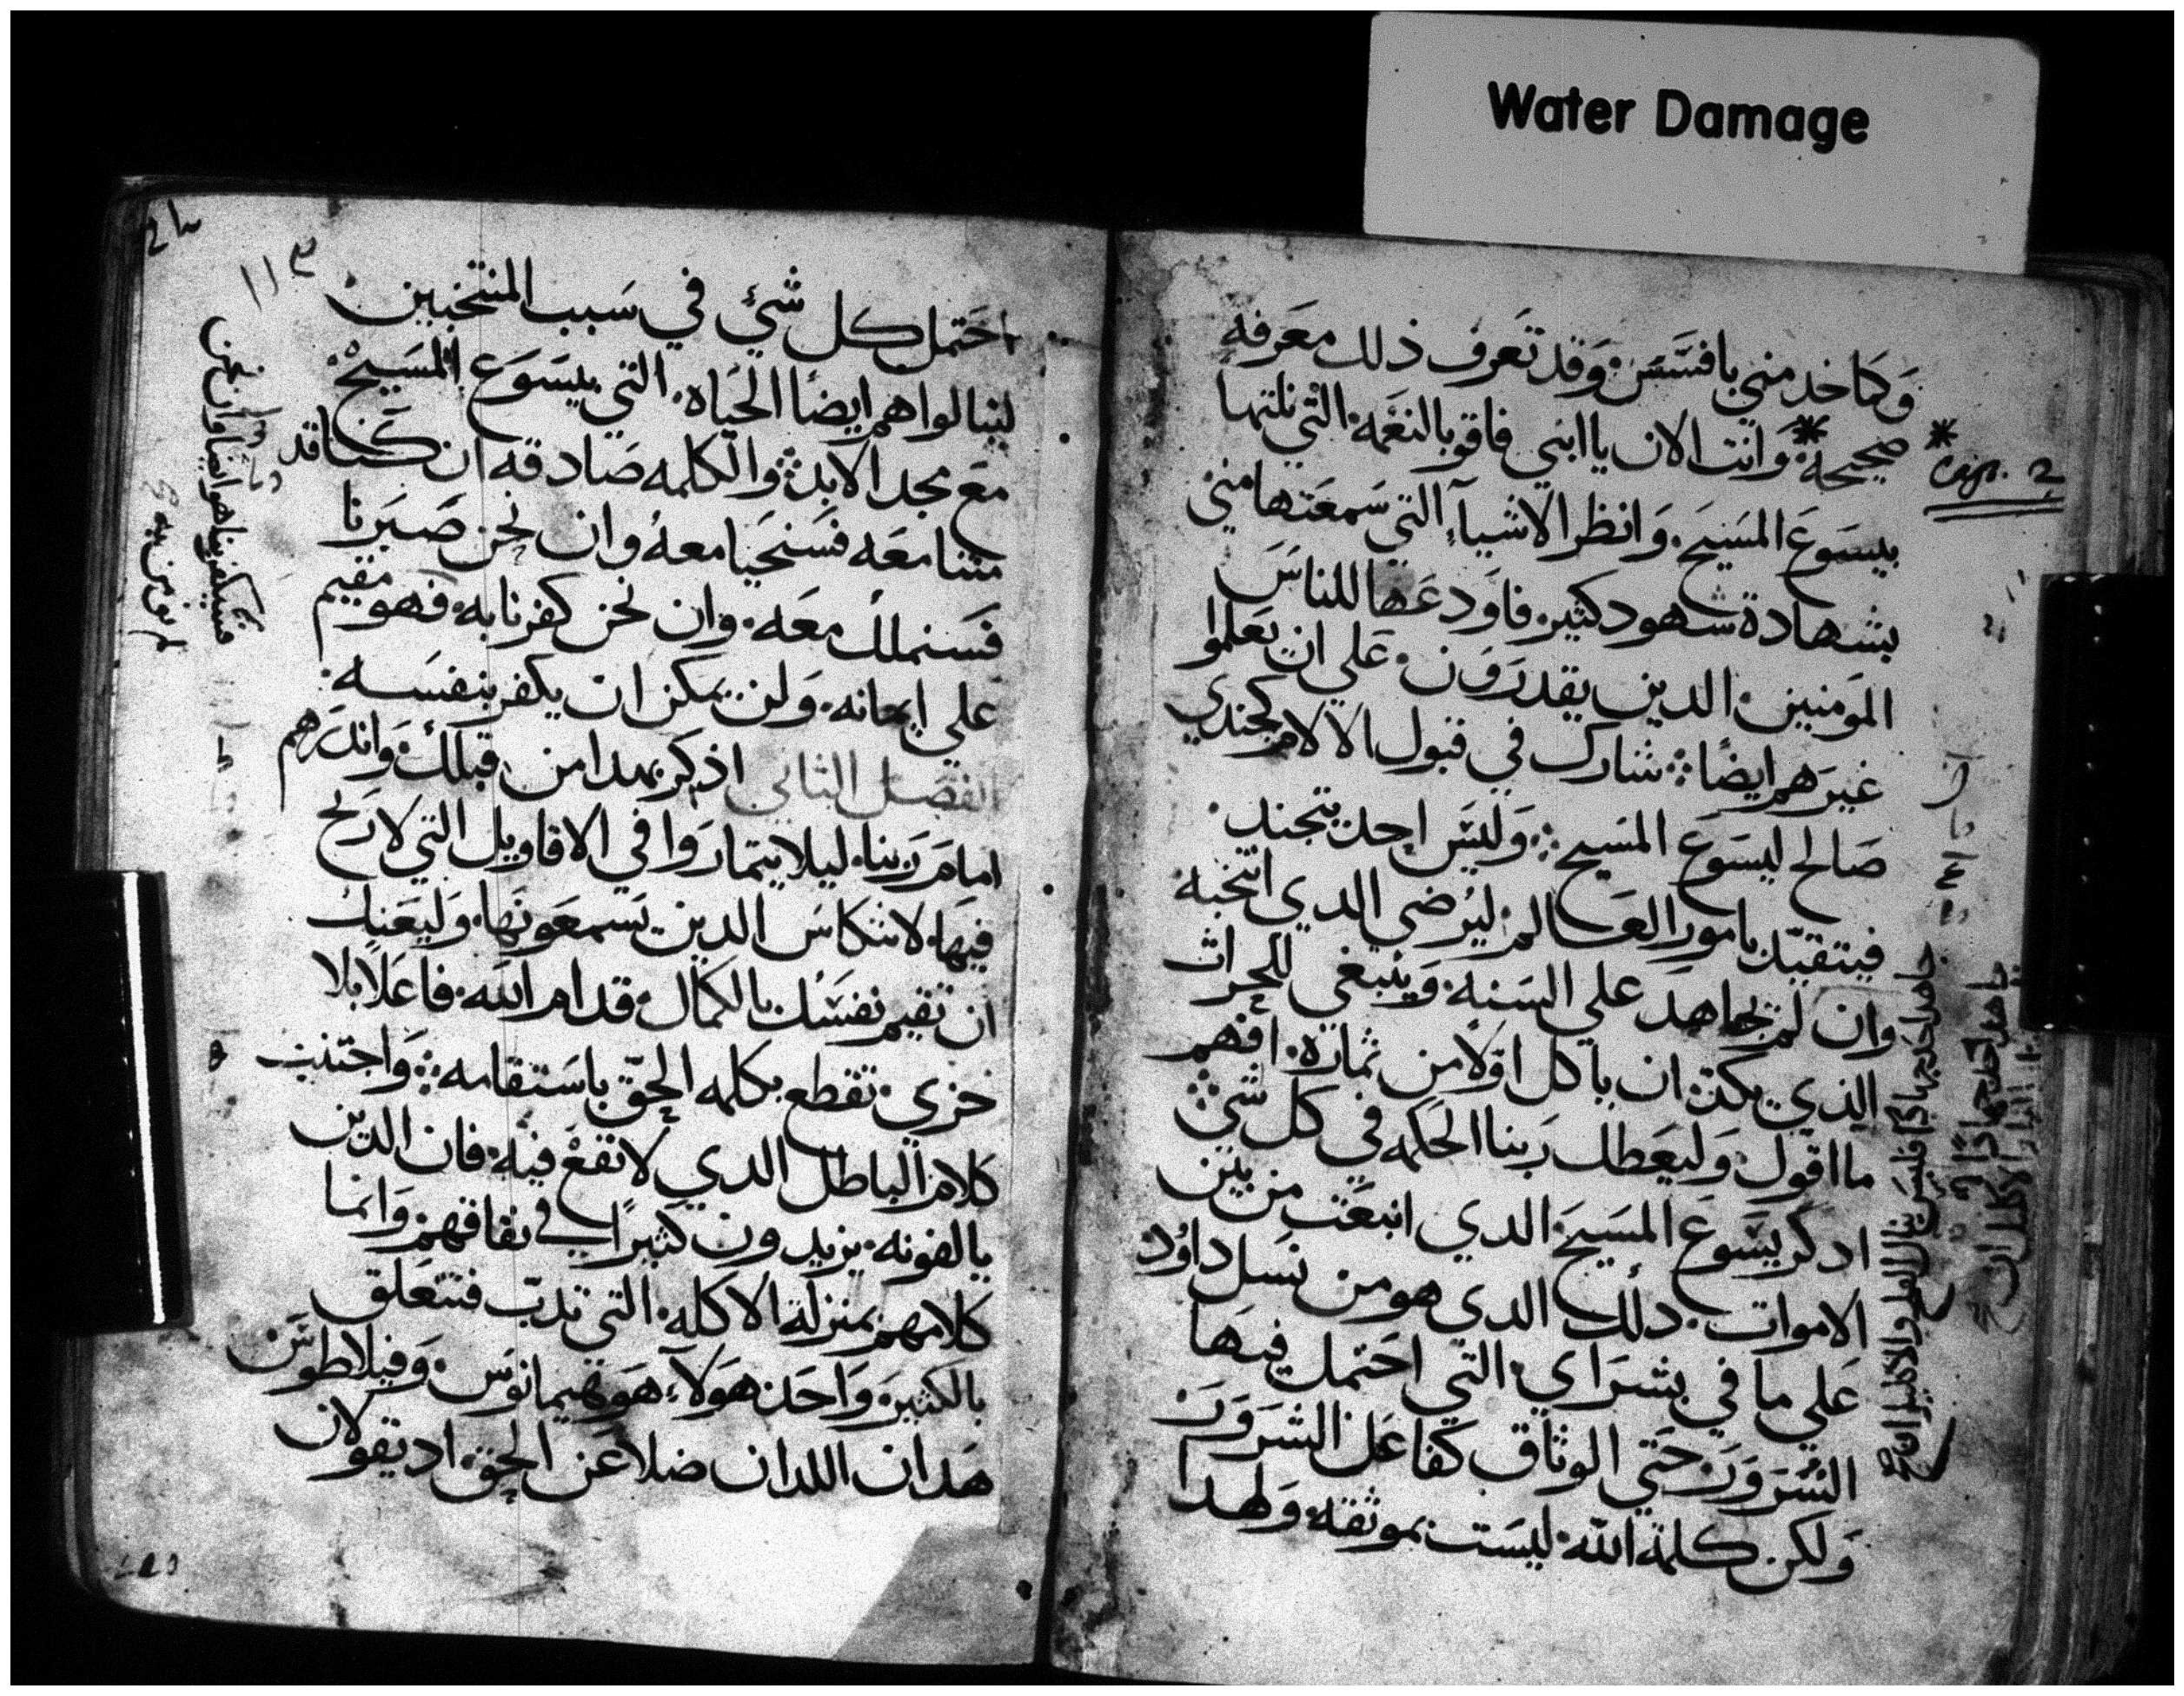 Water Damage
وَكما خدمني بافسَّسَ وَقد تَعرف ذلك معَرفه
صحيحه * وَانت الان يا ابني فاقو بالنعَمه التي نلتها
Cap. 2
بيسَوعَ المسَيح. وَانظر الاشيآء التي سَمعَتها مني
بشهادة شهود كثير. فاَودعَها للناسَ
المَومنين الدين يقدرَوَن. عَلي ان يَعَلموا
غيرَهم ايضًا شارك في قبول الالام كجندي
صَالح ليسَوعَ المسَيح وَليسَ احد يتجند
فيتقيّد بامور العَالم ليرُضي الدي انتخبه
وان لم يجاهدَ علي السَنه وَينبغي للحراث
الذي يكدّ ان ياكل اوّلاً من ثماره. افهم
ما اقول وَليعَطك رَبنا الحكمه في كل شي
ادكر يسَوعَ المسَيحَ الدي انبعَث من بين
الاموات. دلك الدي هو من نسَل داوُد
عَلي ما في بشرَاي التي احَتمل فيهَا
الشَرَوَرَ حَتي الوثاق كفاعَل الشرَوَرَ
وَلكن كلمة الله ليسَت بموثقه وَلهدا
جاهد احد جهادًا فليسَ ينال الفلح والاكليل ان
احَتمل كل شيء في سَبب المنتخبين
لينالوا هم ايضًا الحَياه. التي بيسَوَع المسَيح
معَ مجد الابد والكلمه صَادقه ان كنا قد
متنا معَه فسَنحَيا معهُ وان نحن صَبَرنا
فسَنملك معَه. وان نحن كفرنا به فهو مقيم
علي ايمانه. وَلن يمكن ان يكفر بنفسَه
الفصَل الثاني اذكر بهدا من قبلك وَاندرَهم
امامَ رَبنا. ليلا يتمارَوا في الاقاويل التي لا رَبح
فيهَا. لانتكاسَ الدين يسَمعَونها. وَليعَنك
ان تقيم نفسَك بالكمال قدام الله. فاعَلاً بلا
خزي. تقطع بكلمه الحقّ باسَتقامه وَاجتنب
كلام الباطل الدي لا نفعْ فيه. فان الدين
يالفونه. يزيدون كثيرًا في نفاقهم وَانما
كلامهم بمنزلة الاكله. التي تدبّ فتتعَلق
بالكثير. وَاحَد هَولآء هَو هيمانوسَ. وَفيلاطوسَ
هَدان اللدان ضلا عَن الحق اد يقولان
وان نحن
فسَيكفر بنا هو ايضا وان نحن
لم نومن به